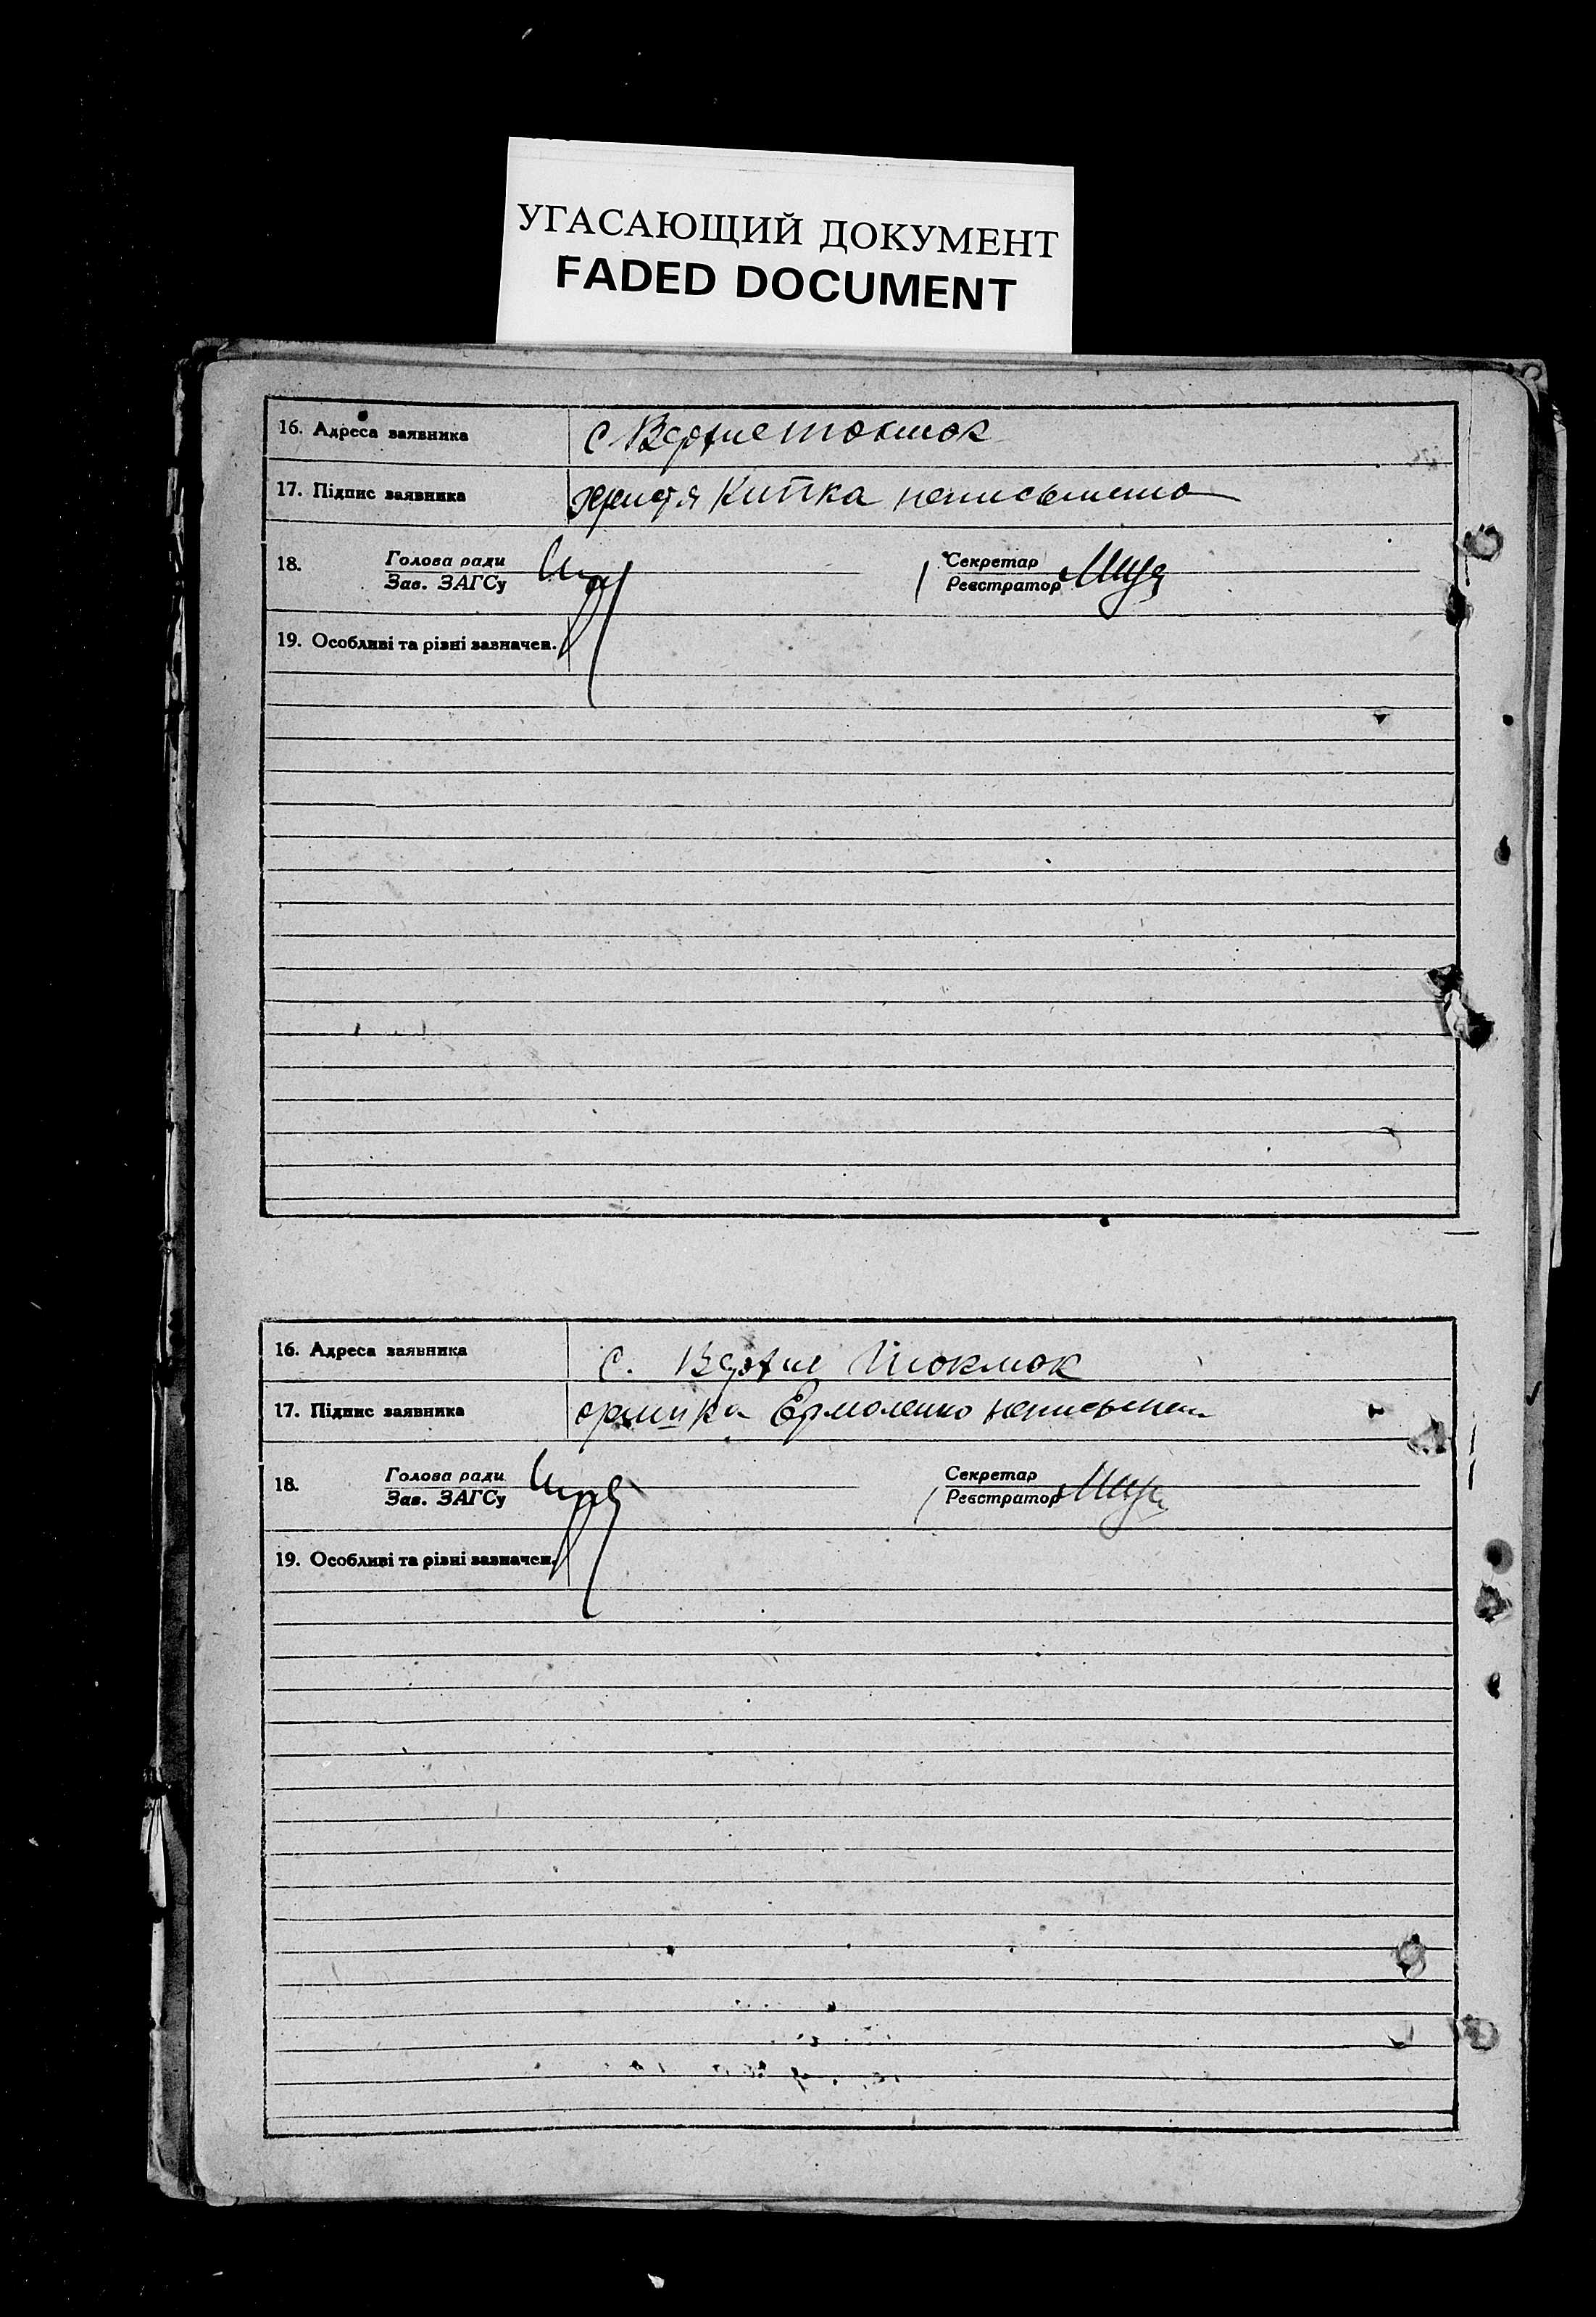 УГАСАЮЩИЙ ДОКУМЕНТ
FADED DOCUMENT
16. Адреса заявника с Верхнетокмок
17. Підпис заявника Христя Кипка неписьменна
18. Голова ради Секретар
Зав. ЗАГСу Реєстратор
19. Особливі та різні зазначен.
16. Адреса заявника с. Верхне Токмок
17. Підпис заявника Ермоленко неписьмен
18. Голова ради Секретар
Зав. ЗАГСу Реєстратор
19. Особливі та різні зазначен.